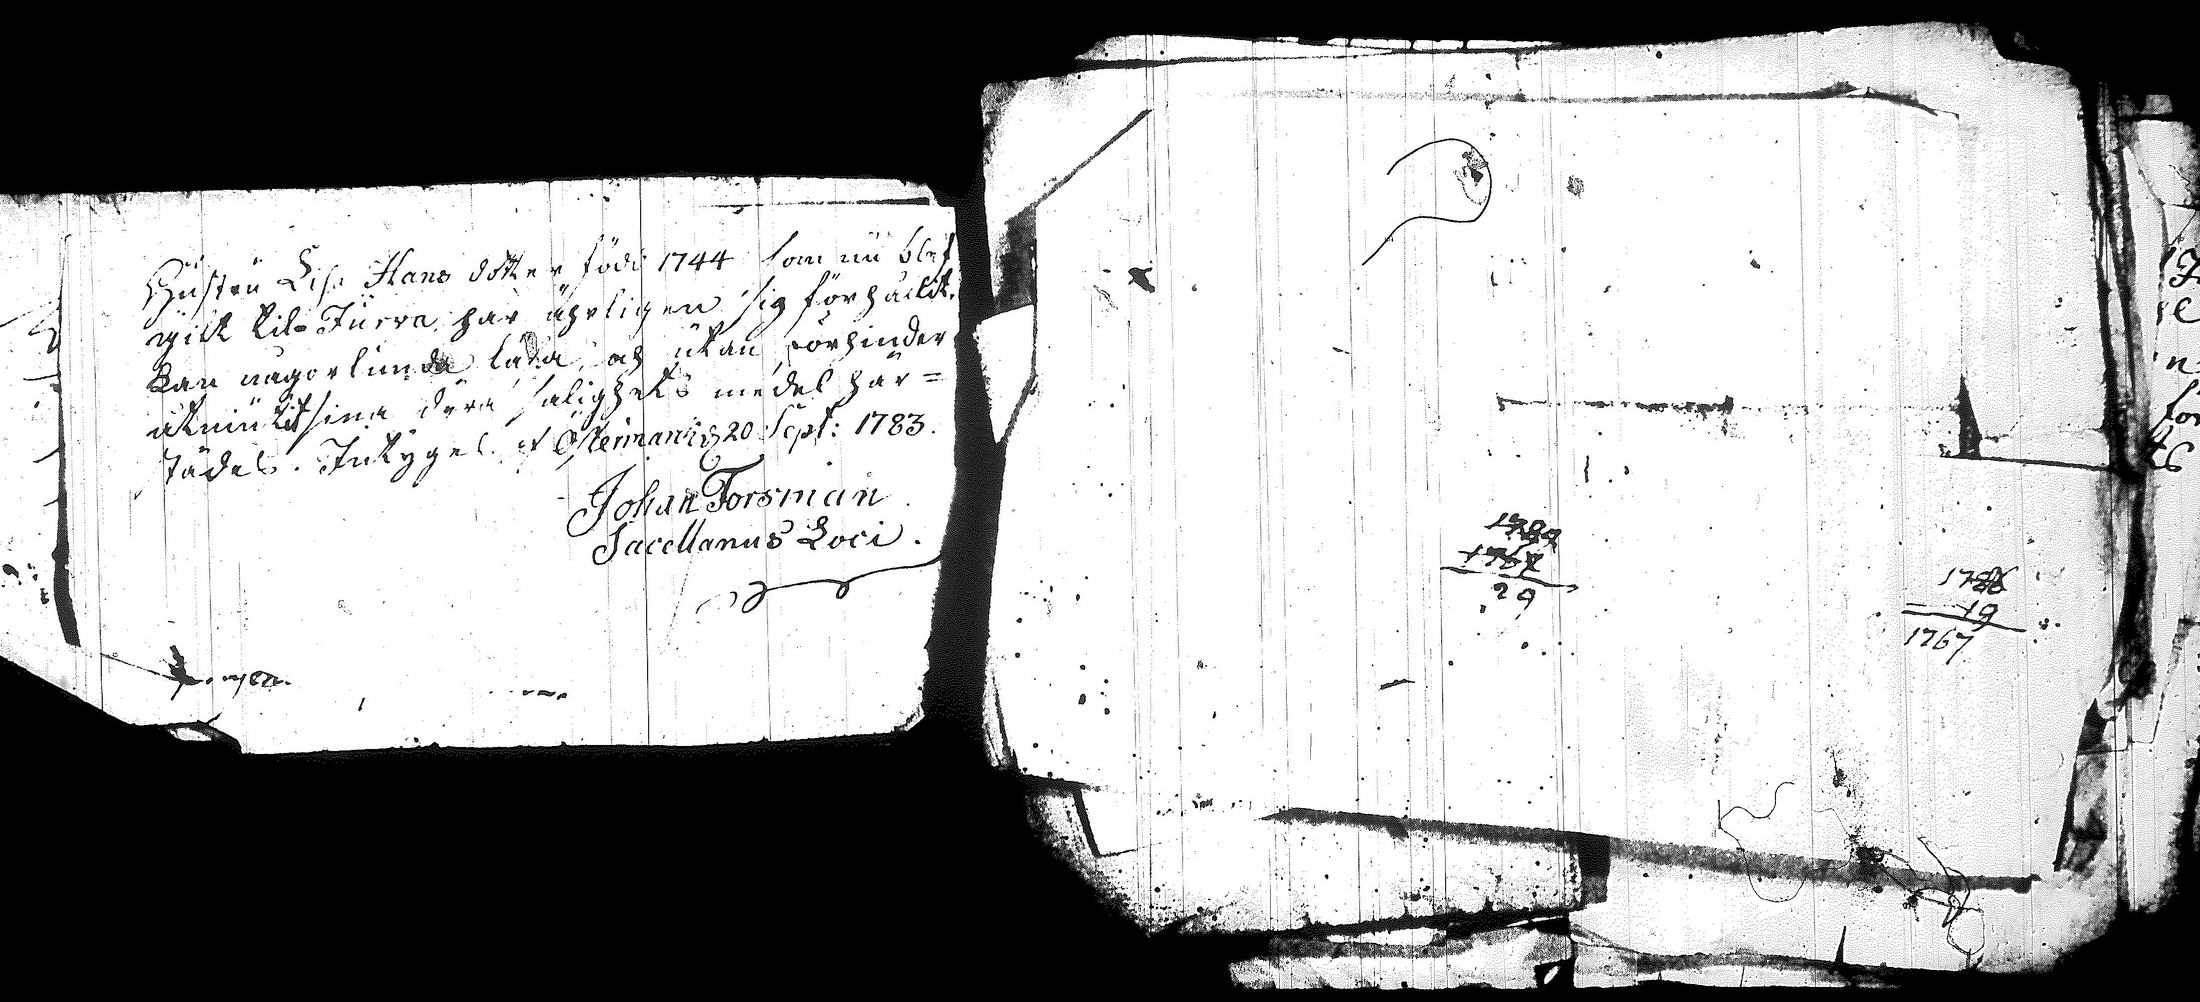 Hüstrü Lisa Hans dotter född 1744 som nü blef
gift til Jürva, har ährligen sig förhållit,
kan någorlunda läsa, och ütan förhinder
utniütit sina dyra salighets medel här=
städes. Intygas af Östermark d 20 Sept: 1783.
Johan Forsman
Sacellanus Loci.
1767
29
1786
19
1767